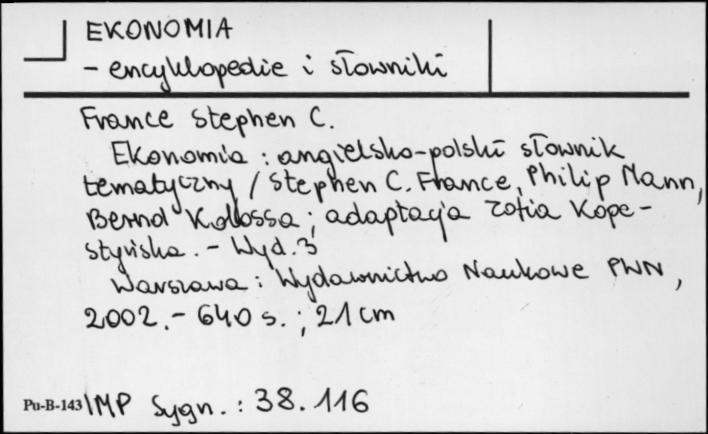 EKONOMIA
- encyklopedie i słowniki
France Stephen C.
Ekonomia : angielsko-polski słownik
tematyczny / Stephen C. France, Philip Mann,
Bernd Kolossa ; adaptacja Zofia Kope-
styńska. - Wyd. 3
Warszawa : Wydawnictwo Naukowe PWN,
2002. - 640 s. ; 21 cm
Pu-B-143 IMP Sygn. : 38.116